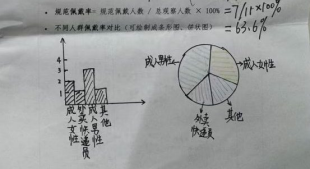 • 规范佩戴率= 规范佩戴人数 / 总观察人数 × 100% = 7/11×100%
= 63.6%
• 不同人群佩戴率对比（可绘制成条形图、饼状图）
4
3
2
1
成人女性
外卖快递员
成人男性
其他
成人男性
成人女性
外卖快递员
其他